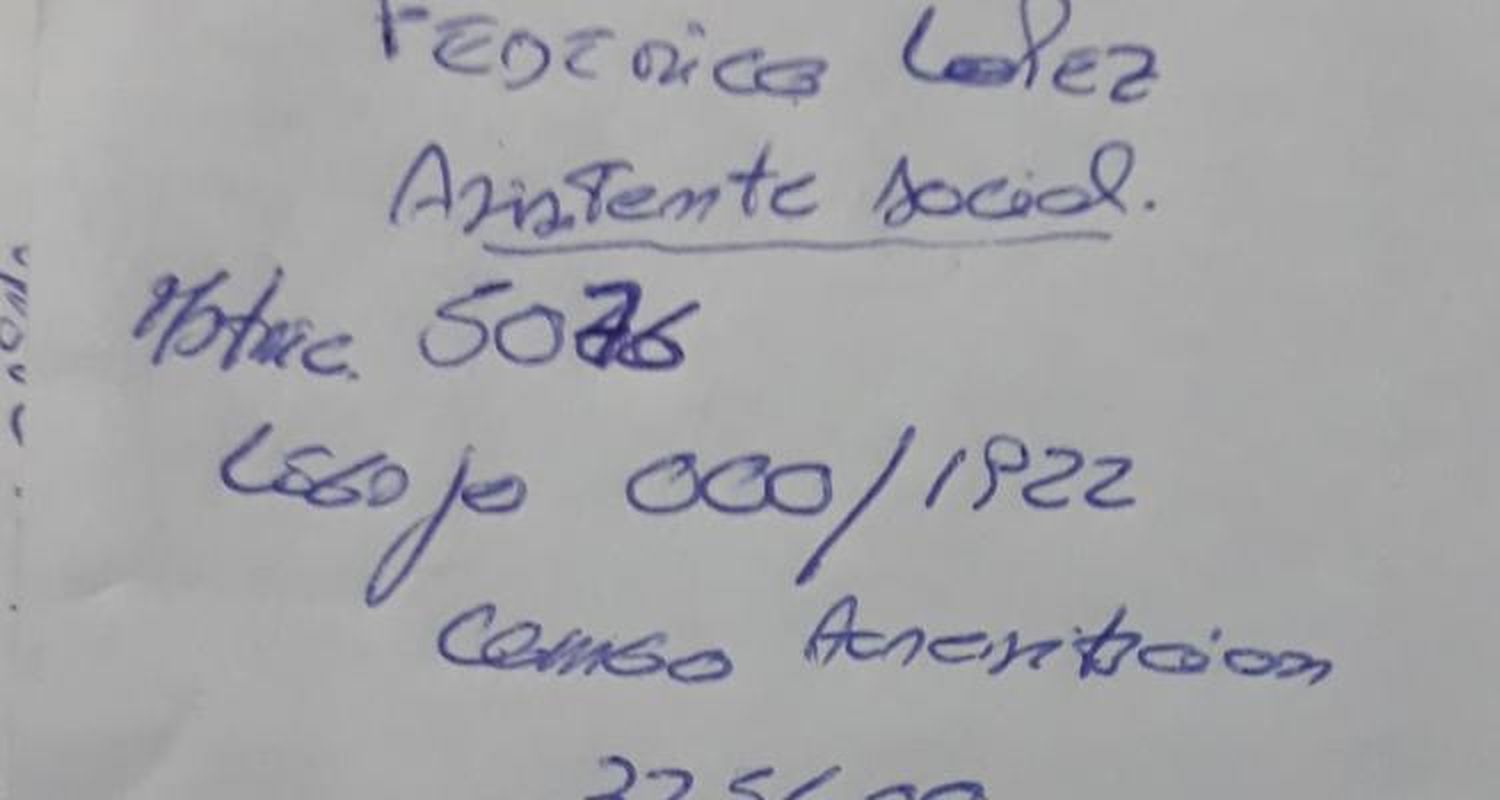 Federico Lopez
Asistente social.
Matric. 5076
Legajo 000/1922
Censo Acreditacion